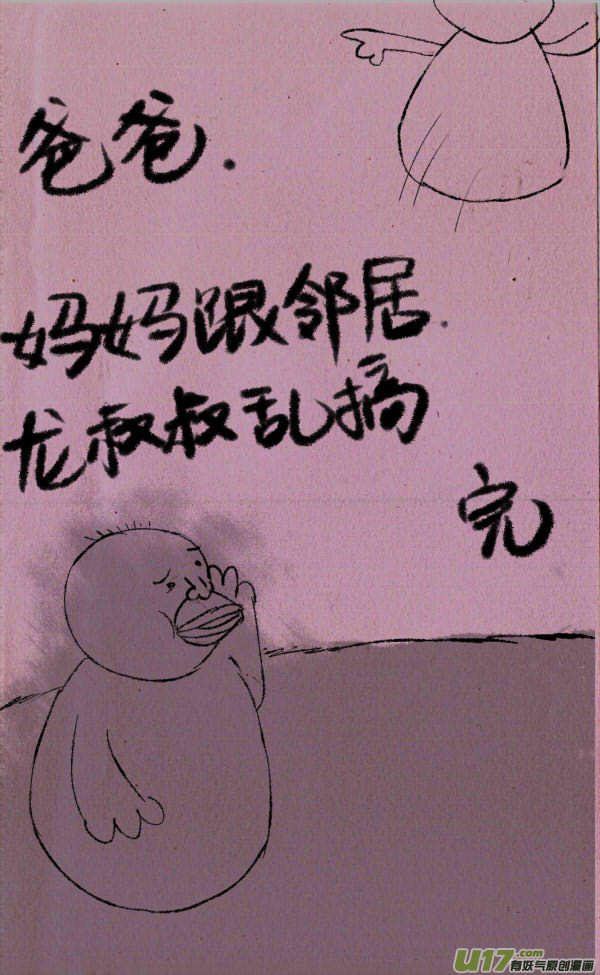 爸爸.
妈妈跟邻居.
龙叔叔乱搞
完
U17.com
有妖气原创漫画